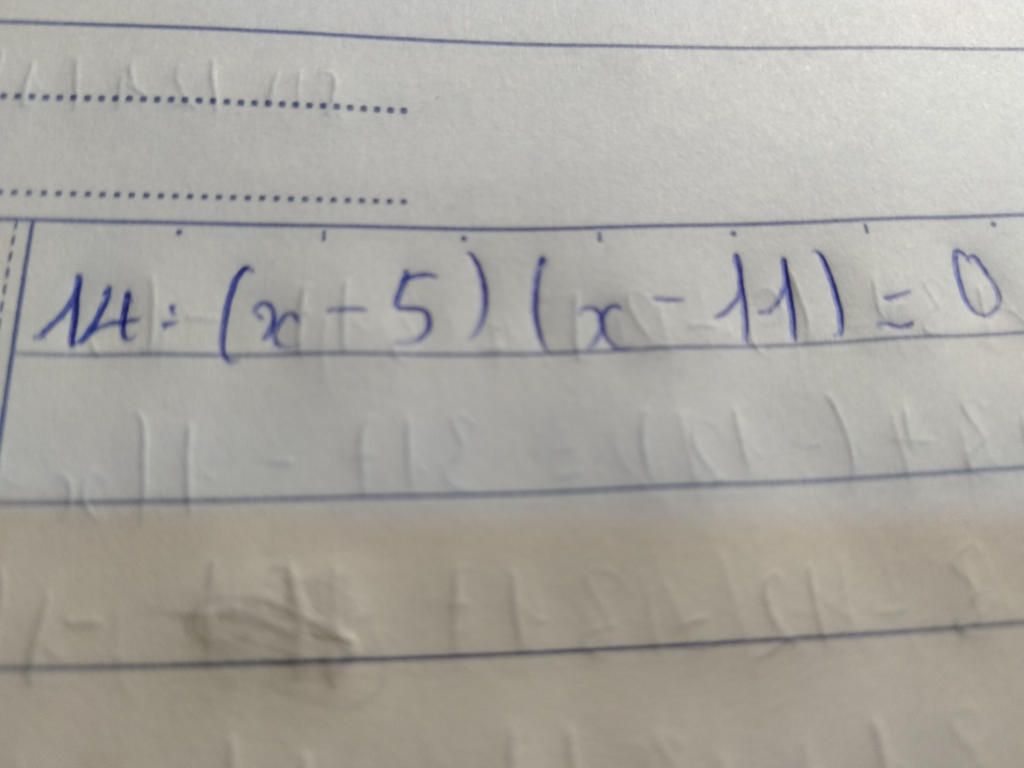 14: (x - 5) (x - 11) = 0